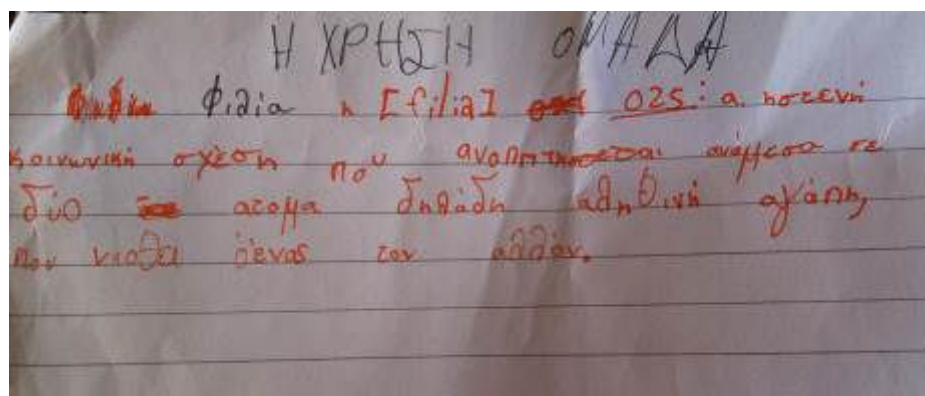 Η ΧΡΗΣΗ ΟΜΑΔΑ
Φιλία η [filia] Ο25: α. ποτενή
κοινωνική σχέση που αναπτησεται ανάμεσα σε
δύο ατομα δηλάδη αληθινή αγάπη,
που νιοθει οένας τον αλλάν.